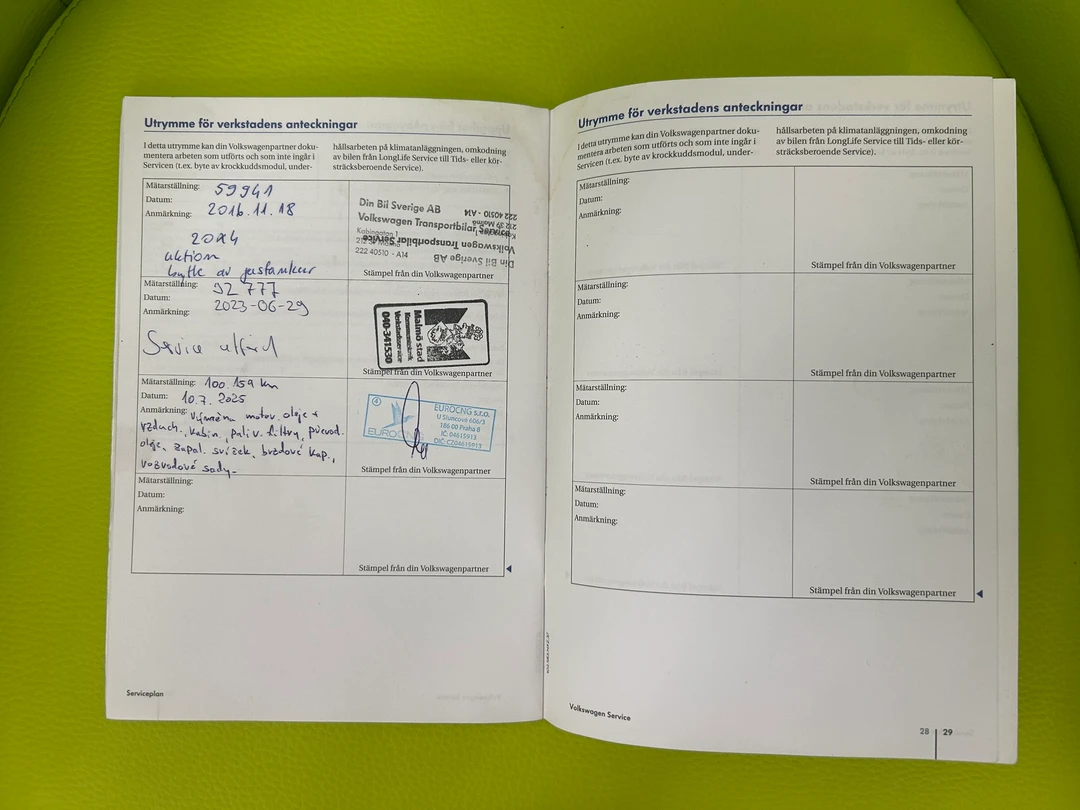 Utrymme för verkstadens anteckningar
I detta utrymme kan din Volkswagenpartner doku-
mentera arbeten som utförts och som inte ingår i
Servicen (t.ex. byte av krockkuddsmodul, under-
hållsarbeten på klimatanläggningen, omkodning
av bilen från LongLife Service till Tids- eller kör-
sträcksberoende Service).
Mätarställning: 59941
Datum: 2016.11.18
Anmärkning:
20A4
aktion
byte av gastankar
Din Bil Sverige AB
Volkswagen Transportbilar Service
222 40510 - A14
Din Bil Sverige AB
Volkswagen Transportbilar Service
222 40510 - A14
Stämpel från din Volkswagenpartner
Mätarställning: 92 777
Datum: 2023-06-29
Anmärkning:
Service utförd
Malmö stad
Kommunteknik
Verkstadsservice
040-341530
Stämpel från din Volkswagenpartner
Mätarställning: 100.159 km
Datum: 10.7.2025
Anmärkning: Výměna motor. oleje +
vzduch., kabin., paliv. filtry, převod.
oleje, zapal. svíček, brzdové kap.,
rozvodové sady.
4
EUROCNG
EUROCNG s.r.o.
U Sluncové 606/3
186 00 Praha 8
IČ: 04615913
DIČ: CZ04615913
Stämpel från din Volkswagenpartner
Mätarställning:
Datum:
Anmärkning:
Stämpel från din Volkswagenpartner
Serviceplan
Utrymme för verkstadens anteckningar
I detta utrymme kan din Volkswagenpartner doku-
mentera arbeten som utförts och som inte ingår i
Servicen (t.ex. byte av krockkuddsmodul, under-
hållsarbeten på klimatanläggningen, omkodning
av bilen från LongLife Service till Tids- eller kör-
sträcksberoende Service).
Mätarställning:
Datum:
Anmärkning:
Stämpel från din Volkswagenpartner
Mätarställning:
Datum:
Anmärkning:
Stämpel från din Volkswagenpartner
Mätarställning:
Datum:
Anmärkning:
Stämpel från din Volkswagenpartner
Mätarställning:
Datum:
Anmärkning:
Stämpel från din Volkswagenpartner
Volkswagen Service
28 29